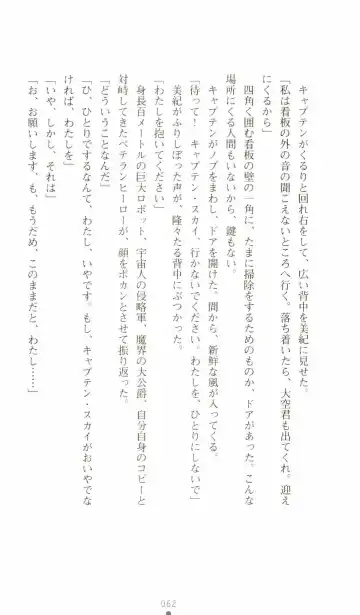 キャプテンがくるりと回れ右をして、広い背中を美紀に見せた。
「私は看板の外の音の聞こえないところへ行く。落ち着いたら、大空君も出てくれ。迎え
にくるから」
　四角く囲む看板の壁の一角に、たまに掃除をするためのものか、ドアがあった。こんな
場所にくる人間もないから、鍵もない。
　キャプテンがノブをまわし、ドアを開けた。間から、新鮮な風が入ってくる。
「待って！　キャプテン・スカイ、行かないでください。わたしを、ひとりにしないで」
　美紀がふりしぼった声が、隆々たる背中にぶつかった。
「わたしを抱いてください」
　身長百メートルの巨大ロボット、宇宙人の侵略軍、魔界の大公爵、自分自身のコピーと
対峙してきたベテランヒーローが、顔をポカンとさせて振り返った。
「どういうことなんだ」
「ひ、ひとりでするなんて、わたし、いやです。もし、キャプテン・スカイがおいやでな
ければ、わたしを」
「いや、しかし、それは」
「お、お願いします、も、もうだめ、このままだと、わたし……」
062